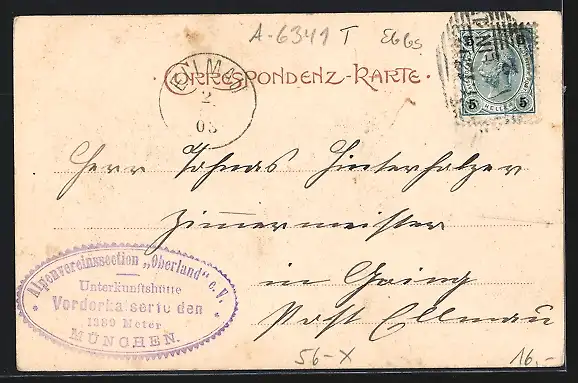 A-6341 T Ebbs
CORRESPONDENZ-KARTE.
5 5
HELLER
2
03
Herr Johnas Hinterholzer
Zimmermeister
in Going
Post Ellmau
Alpenvereinssection „Oberland“ e. V.
Unterkunftshütte
Vorderkaiserfelden
1389 Meter
MÜNCHEN.
56-X
16,-